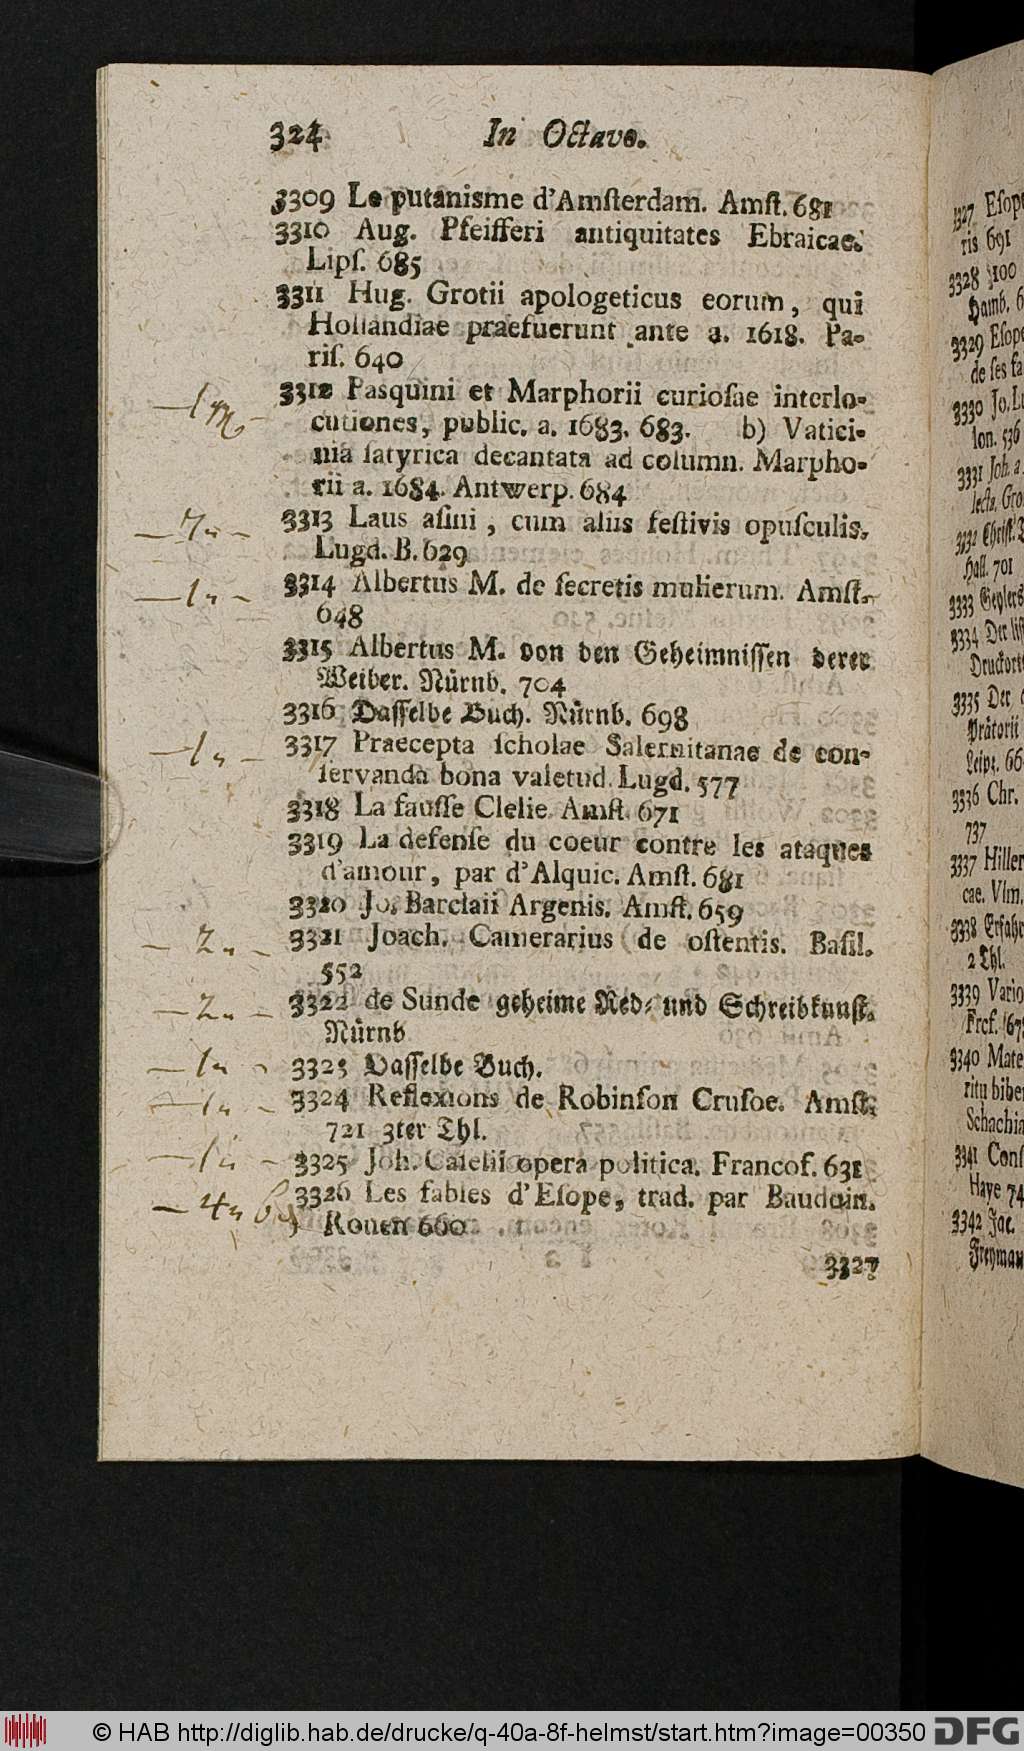 324 In Octavo.
3309 Le putanisme d'Amſterdam. Amſt. 681
3310 Aug. Pfeifferi antiquitates Ebraicae.
Lipſ. 685
3311 Hug. Grotii apologeticus eorum, qui
Hollandiae praefuerunt ante a. 1618. Pa-
riſ. 640
3312 Pasquini et Marphorii curioſae interlo-
cutiones, public. a. 1683. 683. b) Vatici-
nia ſatyrica decantata ad column. Marpho-
rii a. 1684. Antwerp. 684
— 7 — 3313 Laus aſini, cum aliis feſtivis opuſculis.
Lugd. B. 629
— 1 — 3314 Albertus M. de ſecretis mulierum. Amſt.
648
3315 Albertus M. von den Geheimniſſen derer
Weiber. Nürnb. 704
3316 Daſſelbe Buch. Nürnb. 698
— 1 — 3317 Praecepta ſcholae Salernitanae de con-
ſervanda bona valetud. Lugd. 577
3318 La fauſſe Clelie. Amſt. 671
3319 La defenſe du coeur contre les ataques
d'amour, par d'Alquic. Amſt. 681
3320 Jo. Barclaii Argenis. Amſt. 659
— 2 — 3321 Joach. Camerarius de oſtentis. Baſil.
552
— 2 — 3322 de Sunde geheime Red- und Schreibkunſt.
Nürnb
— 1 — 3323 Daſſelbe Buch.
— 1 — 3324 Reflexions de Robinſon Cruſoe. Amſt.
721 3ter Thl.
— 1 — 3325 Joh. Caſelii opera politica. Francof. 631
— 4 3326 Les fables d'Eſope, trad. par Baudoin.
Rouen 660
3327
3327 Eſope
ris 691
3328 100
Hamb. 6
3329 Eſope
de ſes fa
3330 Jo. Lu
lon. 536
3331 Joh. a
lecta. Gro
3332 Chriſt.
Hall. 701
3333 Geylers
3334 Der liſt
Druckort
3335 Der
Prätorii
Leipz. 66
3336 Chr.
737
3337 Hiller
cae. Vlm.
3338 Erfahr
2 Thl.
3339 Vario
Frcf. 167
3340 Mate
ritu bibe
Schachia
3341 Conſ
Haye 74
3342 Jac.
Freymau
© HAB http://diglib.hab.de/drucke/q-40a-8f-helmst/start.htm?image=00350 DFG